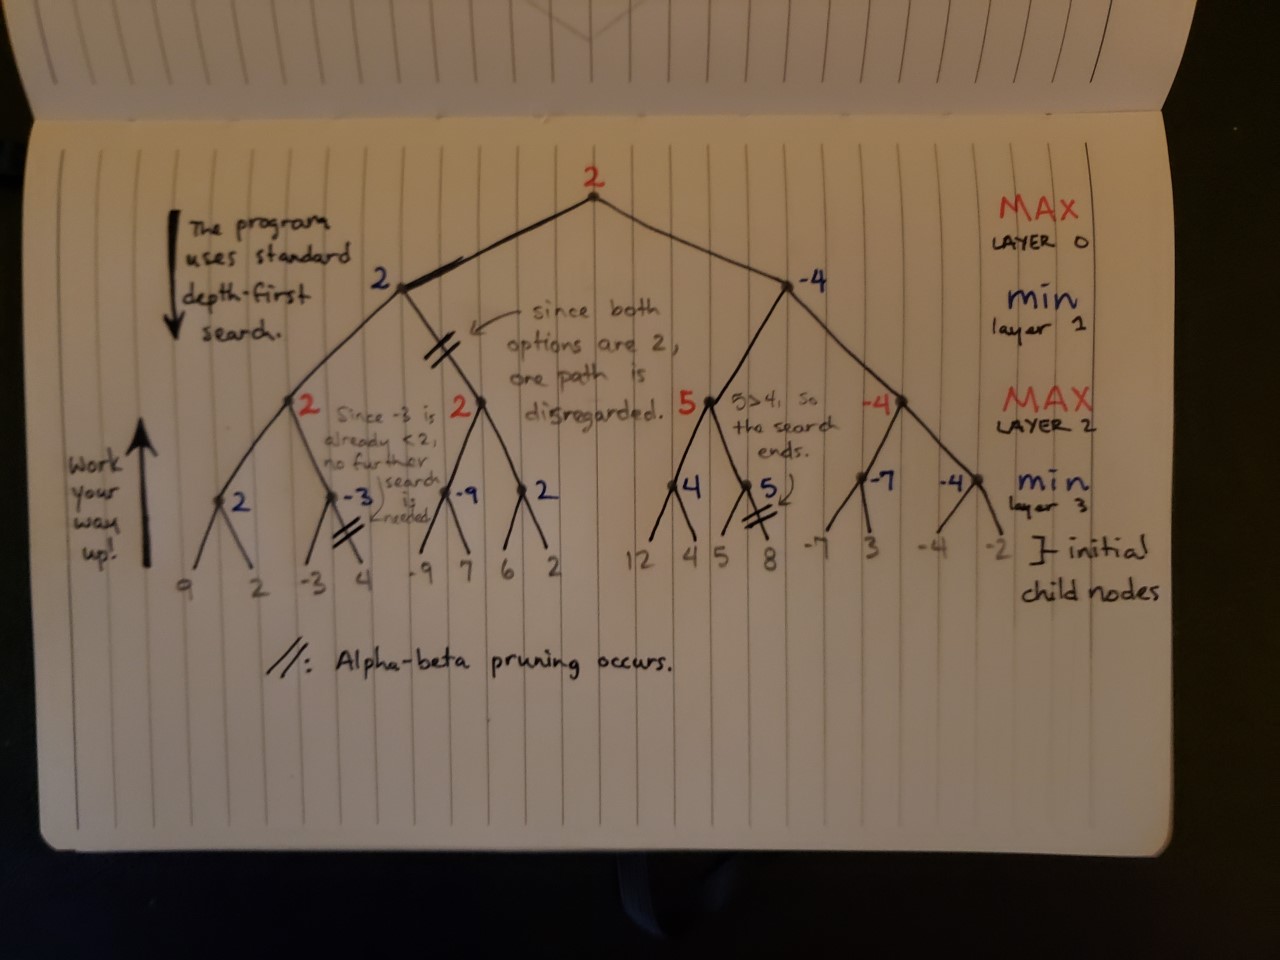 2
MAX
LAYER 0
The program
uses standard
depth-first
search.
2
-4
min
layer 1
since both
options are 2,
one path is
disregarded.
2
Since -3 is
already <2,
no further
search
is
needed
2
5
5>4, so
the search
ends.
-4
MAX
LAYER 2
Work
your
way
up!
2
-3
-9
2
4
5
-7
-4
min
layer 3
9 2 -3 4 -9 7 6 2 12 4 5 8 -7 3 -4 -2
} initial
child nodes
//: Alpha-beta pruning occurs.